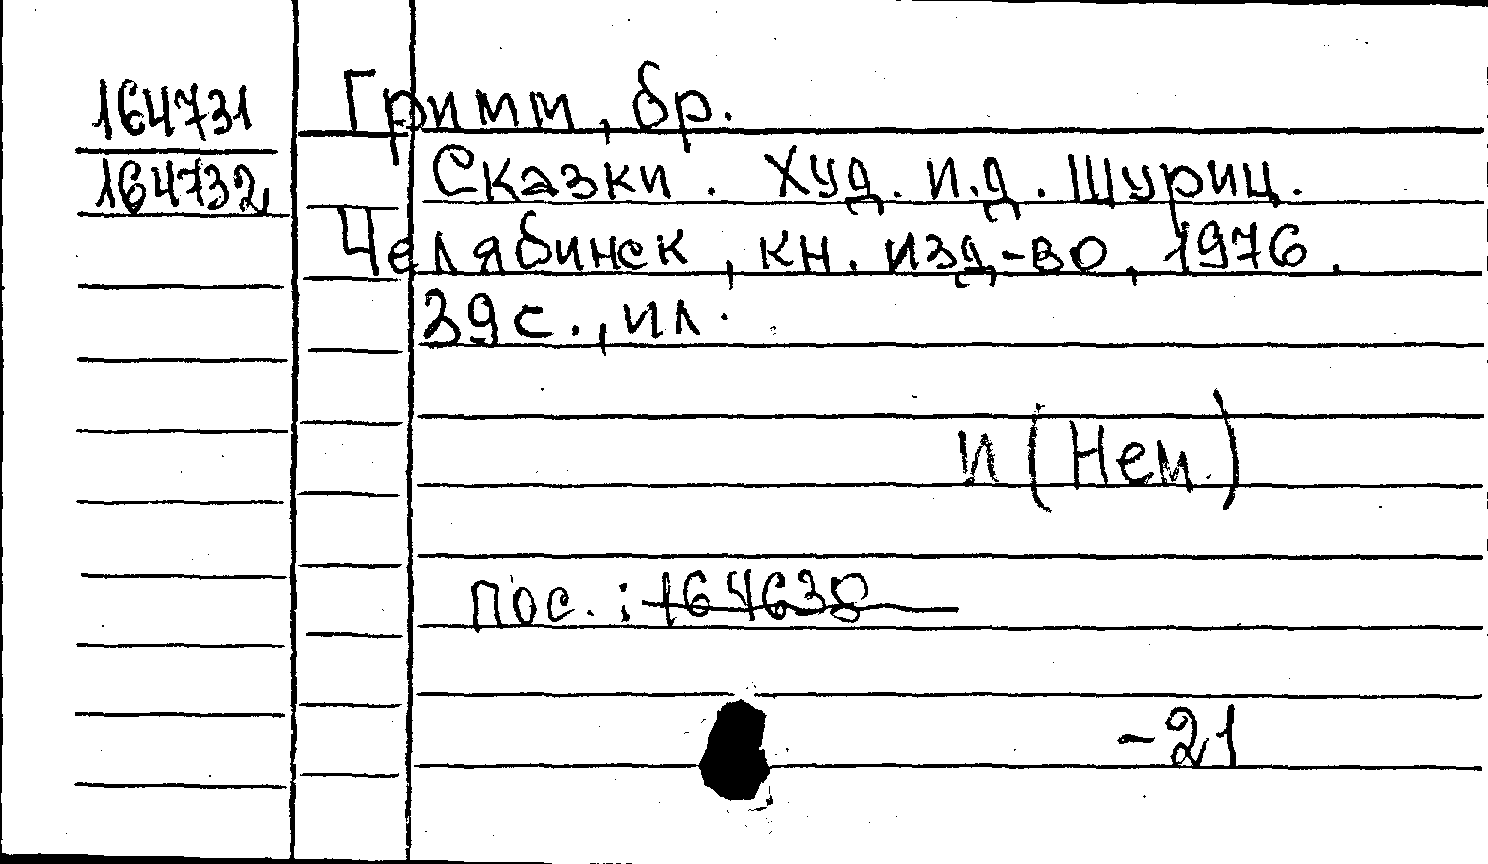 164731
164732
Гримм, бр.
Сказки. Худ. И.Д. Шуриц.
Челябинск, кн. изд-во, 1976.
39с., ил.
И (Нем.)
пос.: 164638
-21